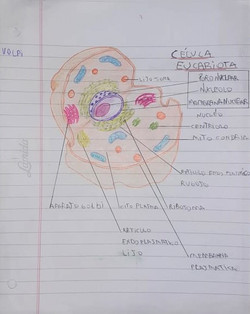 CÉLULA
EUCARIOTA
LISOSOMA
NUCLÉOLO
MEMBRANA NUCLEAR
NUCLEO
CENTRIOLO
MITOCONDRIA
RETICULO ENDOPLASMATICO
RUGOSO
APARATO GOLGI
CITOPLASMA
RIBOSOMA
RETICULO
ENDOPLASMATICO
LISO
MEMBRANA
PLASMATICA